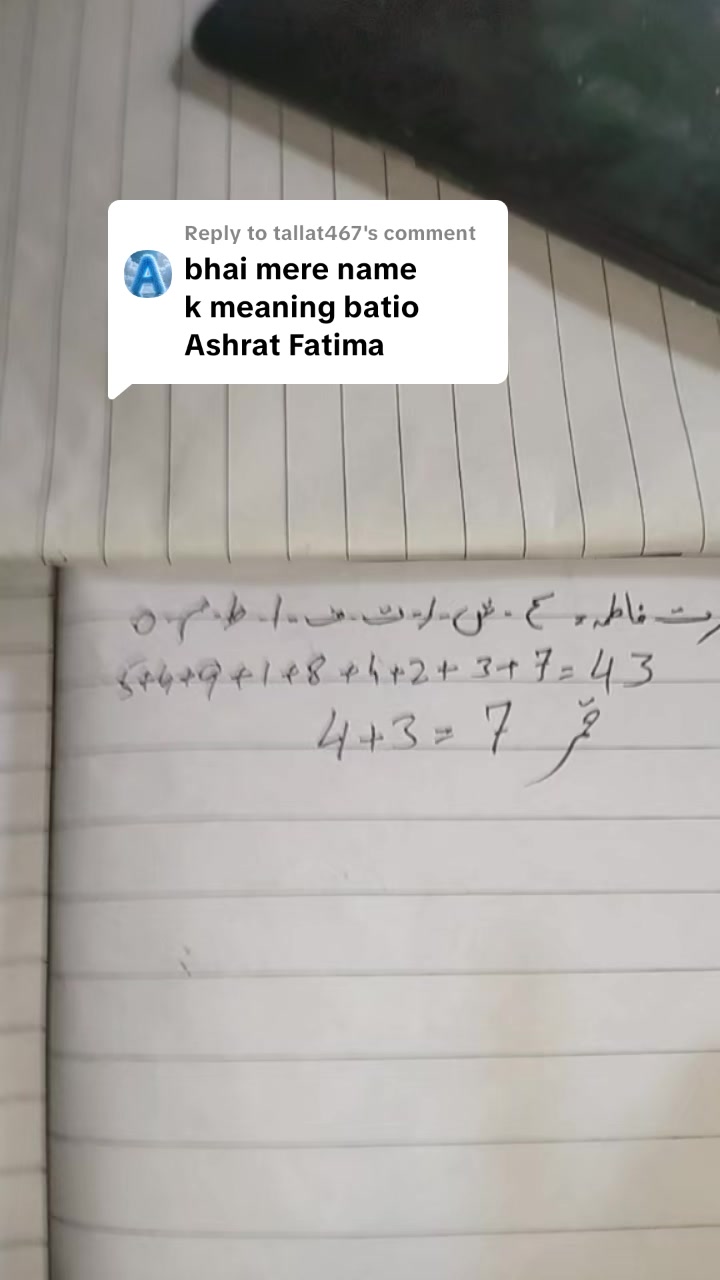 Reply to tallat467's comment
bhai mere name
k meaning batio
Ashrat Fatima
رت فاطمہ = ع - ش - ر - ت - ف - ا - ط - م - ہ
5+4+9+1+8+4+2+3+7=43
4+3=7 قمر